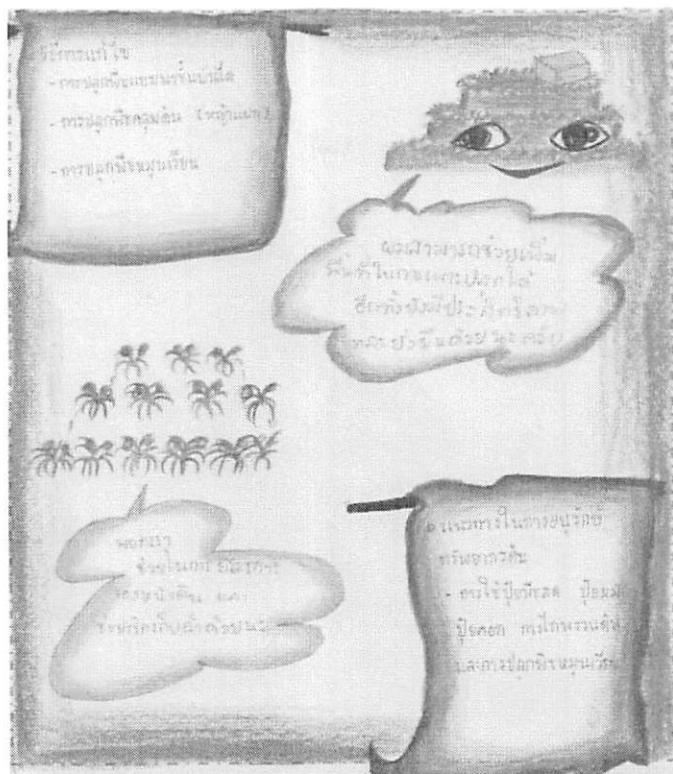 วิธีการแก้ไข
- การปลูกพืชแบบขั้นบันได
- การปลูกพืชคลุมดิน (หญ้าแฝก)
- การปลูกพืชหมุนเวียน
ผมสามารถช่วยเพิ่ม
พื้นที่ในการเพาะปลูกได้
อีกทั้งยังมีประสิทธิภาพ
และยั่งยืนด้วยนะครับ
พวกเรา
ช่วยในการ
หน้าดิน และ
ช่วยกักเก็บน้ำด้วยนะ
แนวทางในการอนุรักษ์
ทรัพยากรดิน
- การใช้ปุ๋ยพืชสด ปุ๋ยหมัก
ปุ๋ยคอก การไถพรวนดิน
และการปลูกพืชหมุนเวียน